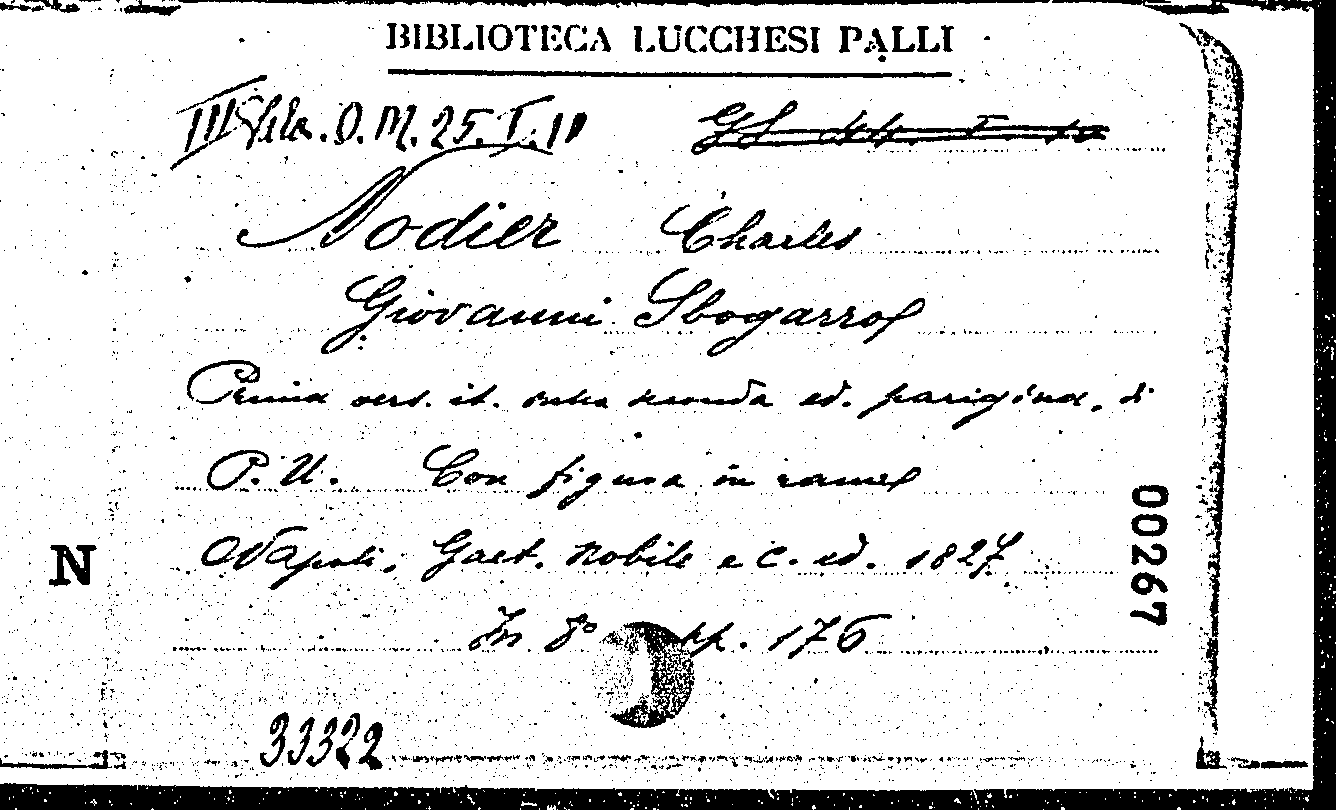 BIBLIOTECA LUCCHESI PALLI
III Sala. O. M. 25. I. 11
Nodier Charles
Giovanni Sbogarro
Prima vers. it. sulla seconda ed. parigina, di
P. U. Con figura in rame
Napoli, Gaet. Nobile e C. ed. 1827
In 8° pp. 176
33322
N
00267